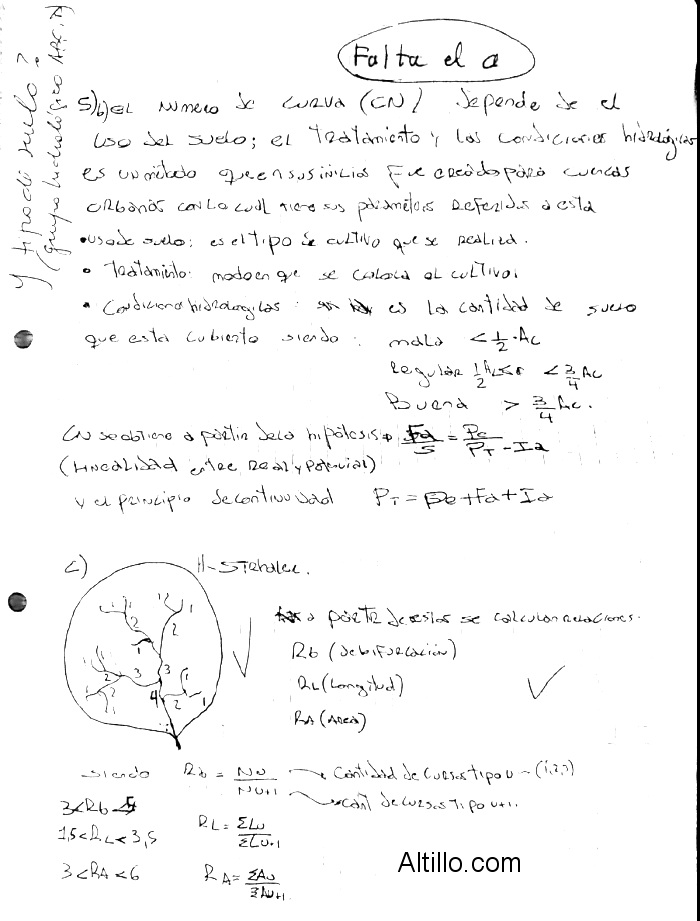 Falta el a
Y tipo de suelo?
(grupo hidrológico A,B,C,D)
5)b) EL número de curva (CN) depende de el
uso del suelo; el tratamiento y las condiciones hidrológicas
es un método que en sus inicios fue creado para cuencas
urbanas con lo cual tiene sus parámetros referidos a esta
• uso de suelo: es el tipo de cultivo que se realiza.
• Tratamiento: modo en que se coloca el cultivo.
• Condiciones hidrologicas: es la cantidad de suelo
que esta cubierto siendo: mala < 1/2 · Ac
Regular 1/2 Ac < r < 3/4 Ac
Buena > 3/4 Ac.
CN se obtiene a partir de la hipótesis Fa/S = Pe/PT - Ia
(Linealidad entre Real y Potencial)
y el principio de continuidad PT = Pe + Fa + Ia
c) H-Strhaler.
1 1 1 2 1 2 2 1 1 3 3 2 1 4 2 1
a partir de estos se calculan relaciones.
Rb (de bifurcación)
RL (Longitud)
RA (Area)
siendo Rb = Nu/Nu+1 → Cantidad de cursos tipo u - (1,2,3)
→ cant de cursos tipo u+1.
3<Rb<5
1,5<RL<3,5 RL = ΣLu/ΣLu+1
3<RA<6 RA = ΣAu/ΣAu+1
Altillo.com